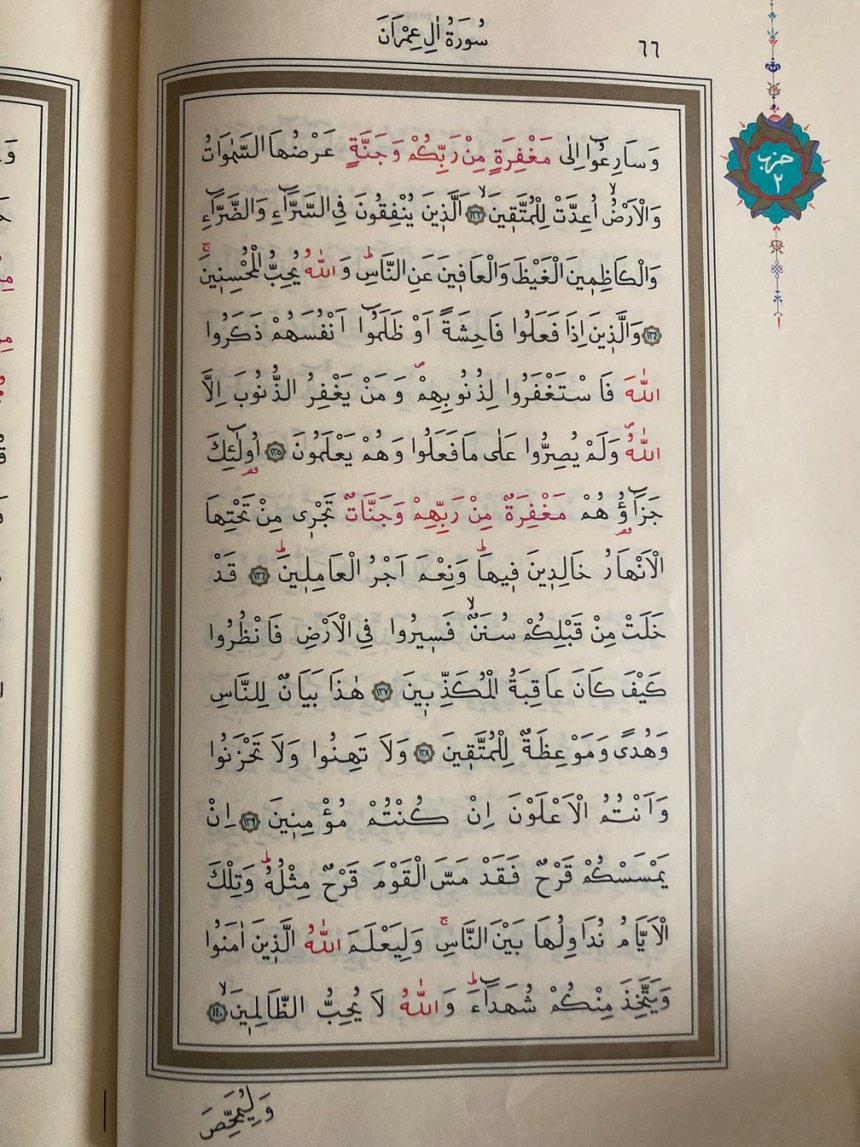 سُورَةُ اٰلِ عِمْرَانَ
٦٦
حزب
٢
وَسَارِعُٓوا اِلٰى مَغْفِرَةٍ مِنْ رَبِّكُمْ وَجَنَّةٍ عَرْضُهَا السَّمٰوَاتُ
وَالْاَرْضُۙ اُعِدَّتْ لِلْمُتَّق۪ينَۙ ﴿١٣٣﴾ اَلَّذ۪ينَ يُنْفِقُونَ فِي السَّرَّٓاءِ وَالضَّرَّٓاءِ
وَالْكَاظِم۪ينَ الْغَيْظَ وَالْعَاف۪ينَ عَنِ النَّاسِۜ وَاللّٰهُ يُحِبُّ الْمُحْسِن۪ينَۚ
﴿١٣٤﴾ وَالَّذ۪ينَ اِذَا فَعَلُوا فَاحِشَةً اَوْ ظَلَمُٓوا اَنْفُسَهُمْ ذَكَرُوا
اللّٰهَ فَاسْتَغْفَرُوا لِذُنُوبِهِمْۖ وَمَنْ يَغْفِرُ الذُّنُوبَ اِلَّا
اللّٰهُۖ وَلَمْ يُصِرُّوا عَلٰى مَا فَعَلُوا وَهُمْ يَعْلَمُونَ ﴿١٣٥﴾ اُو۬لٰٓئِكَ
جَزَٓاؤُ۬هُمْ مَغْفِرَةٌ مِنْ رَبِّهِمْ وَجَنَّاتٌ تَجْر۪ي مِنْ تَحْتِهَا
الْاَنْهَارُ خَالِد۪ينَ ف۪يهَاۜ وَنِعْمَ اَجْرُ الْعَامِل۪ينَۜ ﴿١٣٦﴾ قَدْ
خَلَتْ مِنْ قَبْلِكُمْ سُنَنٌۙ فَس۪يرُوا فِي الْاَرْضِ فَانْظُرُوا
كَيْفَ كَانَ عَاقِبَةُ الْمُكَذِّب۪ينَ ﴿١٣٧﴾ هٰذَا بَيَانٌ لِلنَّاسِ
وَهُدًى وَمَوْعِظَةٌ لِلْمُتَّق۪ينَ ﴿١٣٨﴾ وَلَا تَهِنُوا وَلَا تَحْزَنُوا
وَاَنْتُمُ الْاَعْلَوْنَ اِنْ كُنْتُمْ مُؤْمِن۪ينَ ﴿١٣٩﴾ اِنْ
يَمْسَسْكُمْ قَرْحٌ فَقَدْ مَسَّ الْقَوْمَ قَرْحٌ مِثْلُهُۜ وَتِلْكَ
الْاَيَّامُ نُدَاوِلُهَا بَيْنَ النَّاسِۚ وَلِيَعْلَمَ اللّٰهُ الَّذ۪ينَ اٰمَنُوا
وَيَتَّخِذَ مِنْكُمْ شُهَدَٓاءَۜ وَاللّٰهُ لَا يُحِبُّ الظَّالِم۪ينَۙ ﴿١٤٠﴾
وَلِيُمَحِّصَ